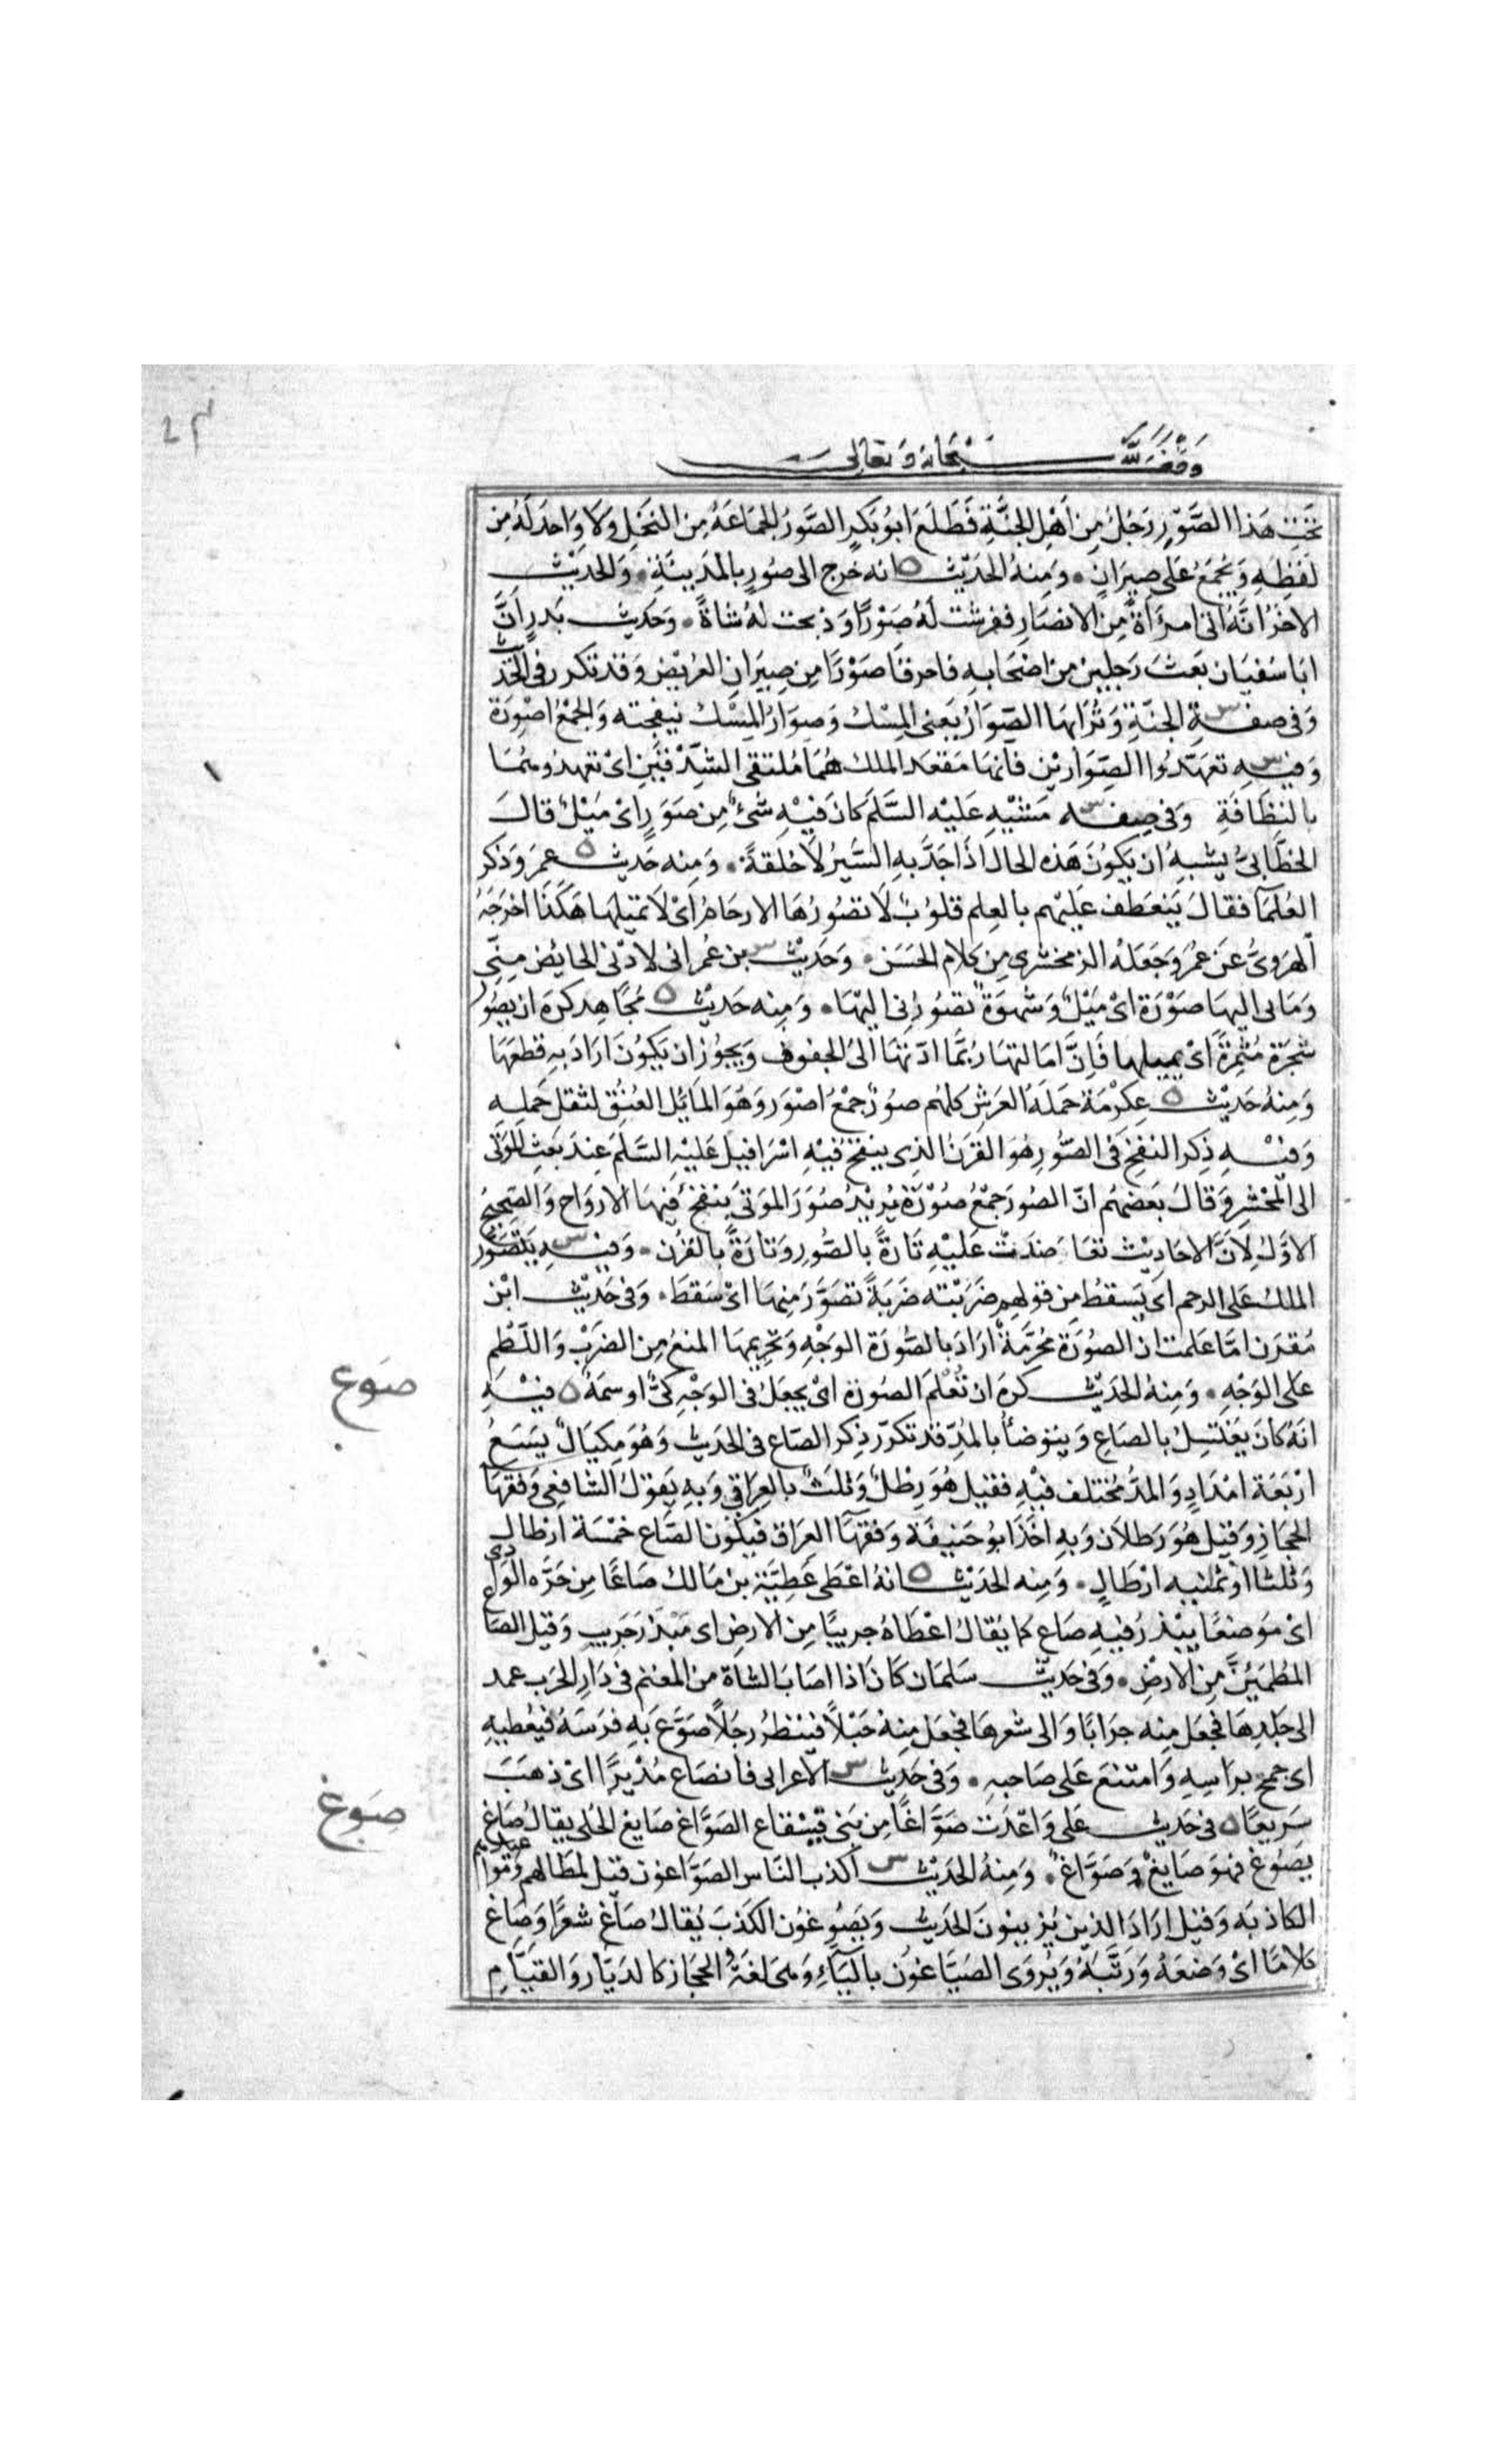 وقف لله سبحانه وتعالى
تحت هذا الصَّوْرِ رَجُلٌ مِن اَهْلِ الجنَّةِ فَطَلَعَ ابُوبَكرٍ الصَّوْرُ الجمَاعَةُ مِن النخلِ وَلَا وَاحدَ لَهُ مِن
لَفظِهِ وَيُجْمَعُ عَلى صِيرَانٍ وَمِنهُ الحَدِيْث ه انه خرج الى صَوْرٍ بالمَدِينَةِ وَالحَدِيْث
الاخَرُ انَّهُ اتى امرَأةً مِن الانصَارِ ففرشت لَهُ صَوْرًا وَذبحت لهُ شاةً وَحَدِيث بَدرٍ اَنَّ
ابَا سُفيَان بَعَثَ رَجلين مِن اصْحَابِهِ فاحرقَا صَوْرًا مِن صِيرَانِ العُرَيْضِ وَقد تكرر فى الحَديث
وَفى صِفَةِ الجنَّةِ وَتُرَابهَا الصِّوَارُ يَعنى المِسْك وَصِوَارُ المِسْك نيفجته وَالجمْعُ اصْوِرَة
وَفيه س تعَهَّدُوا الصِّوَارَيْن فانهَا مَقعَد الملك هُمَا مُلتقى الشِّدْقَيْنِ اىْ تعهدُوهُمَا
بالنظَافَةِ وَفى صِفَه س مَشْيِهِ عَلَيْهِ السَّلَم كانَ فيْهِ شَىْءٌ مِن صَوَرٍ اىْ مَيْلٌ قالَ
الخطَّابىُّ يشبهُ ان يَكُونَ هَذه الحال اذَا جَدَّ بهِ السَّيرُ لَا خلقَةً وَمِنه حَديث ه عمرَ وَذكر
العُلمَآ فقالَ يَنعَطف عَليْهم بالعِلمِ قلوُبٌ لَا تصُورُهَا الارحَامُ اىْ لَا تميلهَا هَكذَا اخرَجَهُ
الهرَوىُّ عَن عُمرَ وَجَعَلهُ الزمخشرى مِن كلام الحسَن وَحَدِيث س بن عُمر انى لادْنى الحايُضَ مِنّى
وَمَا بى اليهَا صَوْرَة اىْ مَيْلٌ وَشَهوَةٌ تصُورُنى اليْهَا وَمِنه حَديْث ه مُجَاهِد كرَهَ ان يصُوْر
شجَرَةً مُثمِرَةً اىْ يميلها فَاِنَّ امَالتهَا رُبَّمَا ادَّتهَا الىَ الجفوف وَيجوُز ان يَكُونَ ارَادَ بهِ قطعَهَا
وَمِنهُ حَديْث ه عِكرْمَة حَمَلَة العَرشِ كلهُم صُوْرٌ جَمْعُ اصْوَر وَهُوَ المَايُل العُنُقِ لثقل حَملِهِ
وَفيْهِ ذِكر النفخِ فى الصُّورِ هُوَ القرَنُ الذِى ينفخُ فيْهِ اسْرَافيل عَليْهِ السَّلمَ عِندَ بَعثِ الموتى
الى المحْشرِ وَقالَ بَعضهُم انّ الصُورَ جَمْعُ صُوْرَةٍ يُريْدُ صُوَرَ المَوتىَ يَنفخُ فيْهَا الارَوَاح وَالصَّحِيحُ
الاوَّل لِاَنَّ الاحَادِيْث تعَاضدَتْ عَليْهِ تارَةً بالصُّورِ وَتارَةً بالقَرَن وَفيهِ س يَتصَوَّر
الملكُ عَلى الرحم اىْ يَسقطُ مِن قولهم ضَرَبْته ضَرَبَةً تصَوَّرَ مِنهَا اىْ سَقَطَ وَفى حَدِيْث ابْن
مُقرن امَّا عَلمتَ ان الصُوَرَة مُحُرَّمَةٌ ارَادَ بالصُّورَة الوَجْهِ وَتحرِيمهَا المنعُ مِن الضَرْبِ وَاللَّطْمِ
عَلى الوَجْهِ وَمِنهُ الحَدِيْث كرهَ انْ تُعْلمَ الصُورَة اىْ يجعَلُ فى الوَجْهِ كىٌّ اوسمَةٌ ه فيْهِ
صَوع
انَهُ كانَ يَغتسِلُ بالصَاعِ وَيتوَضأُ بالمُدِّ قد تكرّر ذِكر الصّاع فى الحَديث وَهُوَ مِكيَالٌ يسَعُ
ارْبَعَة امْدَادٍ وَالمُدُّ مُختلف فيْهِ فقيل هُوَ رِطْلٌ وَثلثٌ بالعِرَاقِ وَبهِ يَقوْلُ الشافعى وَفقهَآ
الحجَازِ وَقيْل هُوَ رَطلاَن وَبهِ اخَذَ ابُو حَنيفَة وَفقهَآ العَرَاق فيَكُون الصَّاع خمْسَة ارطال
وَثلثا اوْ ثمَنيه ارْطَالٍ وَمِنه الحَديْث ه انهُ اعْطَى عَطِيَّة بن مَالك صَاعًا مِن حَرَّه الوَادى
اىْ مَوَضعًا يبْذرُ فيهِ صَاع كما يُقالُ اعْطَاهُ جريبًا مِن الارضِ اى مَبْذَرَ جَرِيبٍ وَقيل الصَاع
المُطمَئِنُّ مِن الارضِ وَفى حَديْث سَلمَان كَانَ اذا اصَابَ الشاةَ من المغنم فى دَارِ الحَرَب عمد
الى جَلدِهَا فجعَل مِنه جرَابًا وَالى شعرهَا فجعَل مِنهُ حَبْلًا فيَنظرُ رجَلًا صَوَّعَ بَهِ فرَسَهُ فيُعْطيهِ
اى جمحَ برَاسِهِ وَامتنعَ عَلى صَاحبِهِ وَفى حَدِيث س الاعرابى فانصَاع مُدْبِرًا اىْ ذهَبَ
سَريعًا ه فى حَديث عَلى وَاعَدتُ صَوَّاغًا مِن بَنى قيْنقاع الصَوَّاغ صَايغ الحُلى يقالُ صَاغ
صَوغ
يَصُوغ فهوَ صَايغٌ وَصَوَّاغ وَمِنهُ الحَديْث س اكذب النَاس الصَوَّاغون قيل لمَطالهم وَمَوَاعيدهم
الكاذبَه وَقيل ارَادَ الذين يُزيينونَ الحَديث وَيَصُوغوُن الكَذبَ يُقالُ صَاغَ شعرًا وَصَاغ
كلامًا اىْ وَضعَهُ وَرَتَّبَهُ وَيُرْوَى الصَيَّاغوُن باليَآءِ وَهىَ لغَةُ الحجَاز كالدَيَّار وَالقيَّامِ